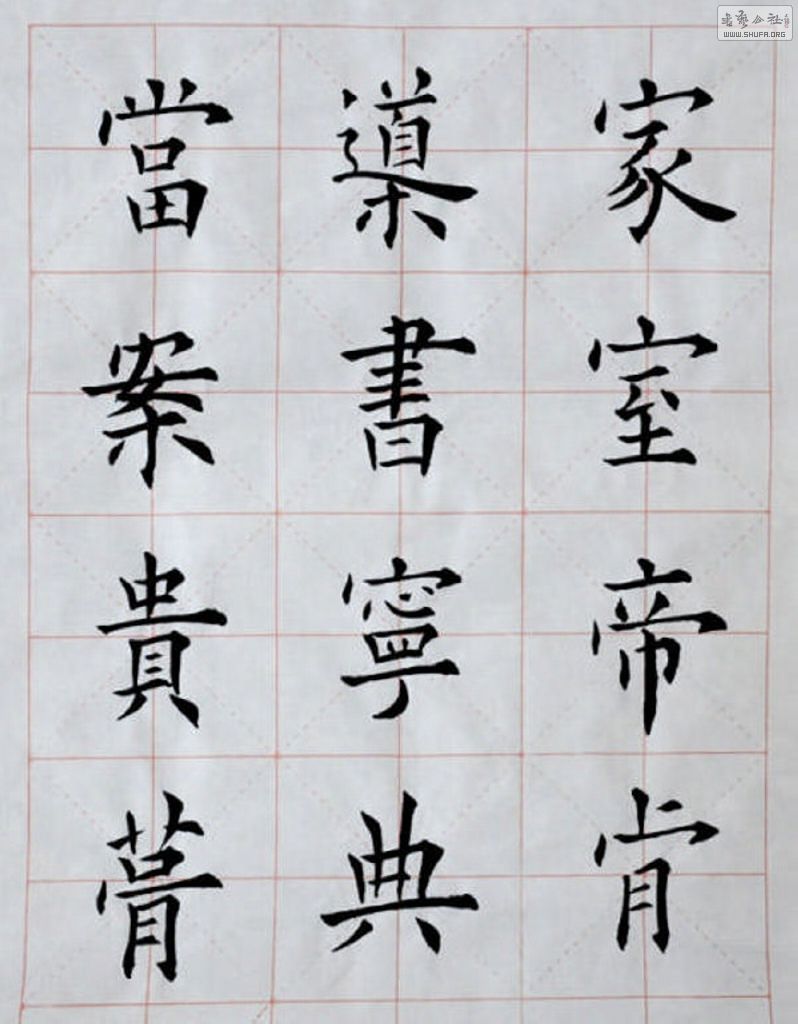 家室帝肯
書寧典
當案貴膏
書藝公社
WWW.SHUFA.ORG